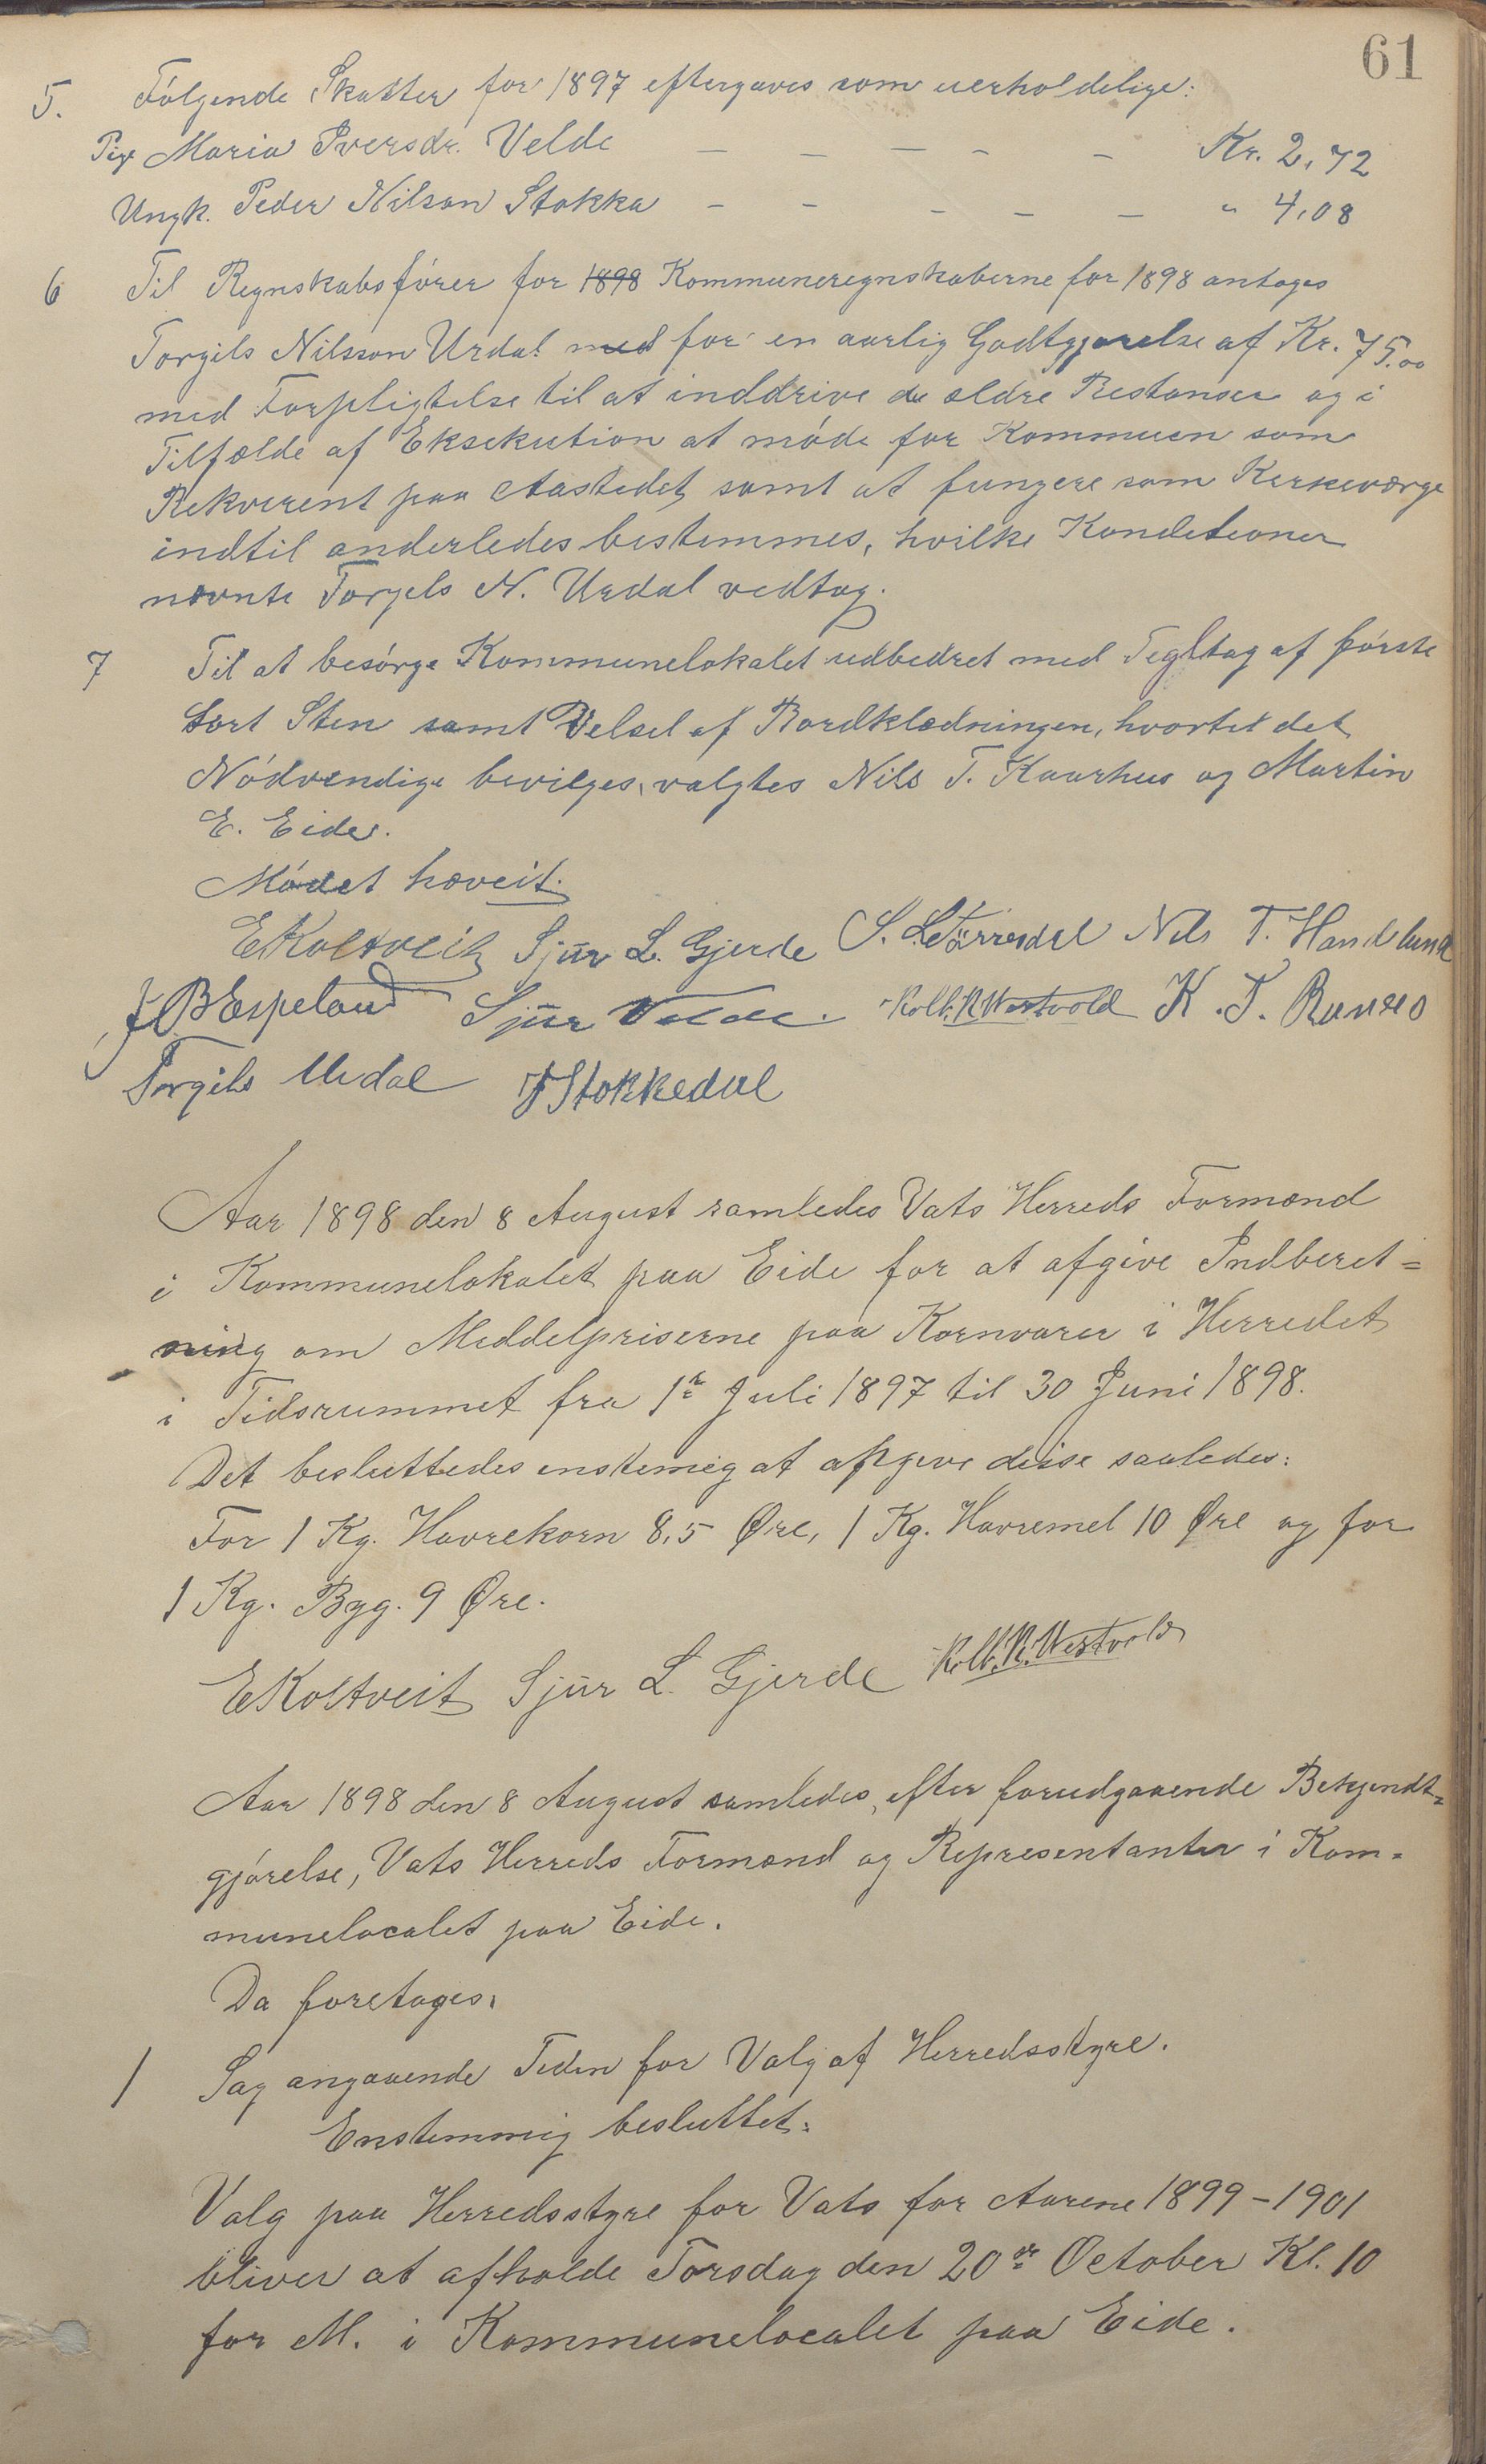 61
5. Følgende Skatter for 1897 eftergaves som uerholdelige:
Pige Maria Iversdr. Velde — — — — — Kr. 2,72
Ungk. Peder Nilson Stokka — — — — — " 4,08
6 Til Regnskabsfører for 1898 Kommuneregnskaberne for 1898 antages
Torgils Nilsson Urdal med for en aarlig Godtgjørelse af Kr. 75.00
med Forpligtelse til at inddrive de ældre Restanser og i
Tilfælde af Eksekution at møde for Kommuen som
Rekvirent paa Aastedet, samt at fungere som Kirkeværge
indtil anderledes bestemmes, hvilke Konditioner
nævnte Torgils N. Urdal vedtog.
7 Til at besørge Kommunelokalet udbedret med Tegltag af første
Sort Sten samt Velsel af Bordklædningen, hvortil det
Nødvendige bevilges, valgtes Nils T. Kaarhus og Martin
E. Eide.
Mødet hævet.
EKoltveit Sjur L. Gjerde S. L. Tørresdal Nils T. Handeland
J B Espeland Sjur Velde. Kolb. R. Westvold K. T. Ramseo
Torgils Urdal J Stokkedal
Aar 1898 den 8 August samledes Vats Herreds Formænd
i Kommunelokalet paa Eide for at afgive Indberet=
ning om Middelpriserne paa Kornvarer i Herredet
i Tidsrummet fra 1ste Juli 1897 til 30 Juni 1898.
Det besluttedes enstemig at afgive disse saaledes:
For 1 Kg. Havrekorn 8,5 Øre, 1 Kg. Havremel 10 Øre og for
1 Kg. Byg. 9 Øre.
EKoltveit Sjur L. Gjerde Kolb. R. Westvold
Aar 1898 den 8 August samledes, efter forudgaaende Bekjendt=
gjørelse, Vats Herreds Formænd og Repræsentanter i Kom=
munelocalet paa Eide.
Da foretages:
1 Sag angaaende Tiden for Valg af Herredsstyre.
Enstemmig besluttet:
Valg paa Herredsstyre for Vats for Aarene 1899-1901
bliver at afholde Torsdag den 20de October Kl. 10
for M. i Kommunelocalet paa Eide.